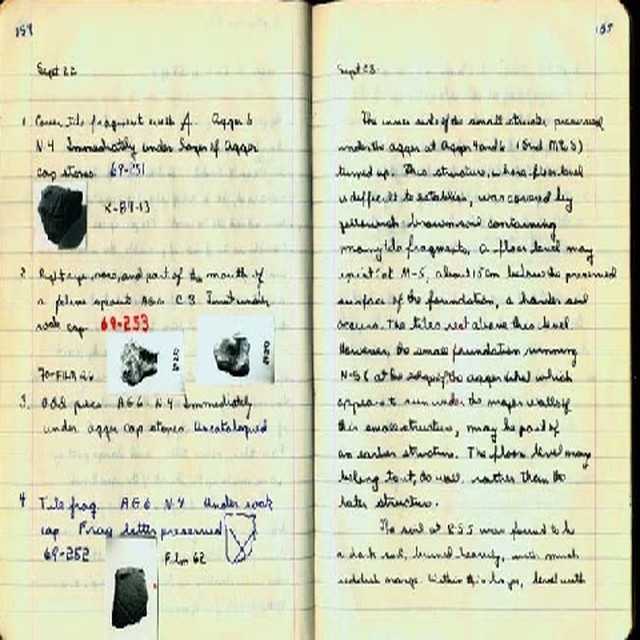 159
Sept 22
1 Cover tile fragment with A. Agger 6
N.4 Immediately under layer of Agger
cap stones 69-251
2 Right eye, nose, and part of the mouth of
a feline spout AG6 C3 Just under
rock cap. 69-253
3. Odd piece AG6 N.4 Immediately
under agger cap stones Uncatalogued
4 Tile frag. AG6 N.4 Under rock
cap. Frag letter preserved
69-252
Film 62
Sept 23
The inner side of the small structure preserved
under the agger at Agger 4 and 6
turned up. This structure, whose floor level
is difficult to establish, was covered by
yellowish brown soil containing
many tile fragments. A floor level may
exist at M-5, about 15cm below the preserved
surface of the foundation, a harder soil
occurs. The tiles rest above this level.
However, the small foundation running
N-S at the edge of the agger which
appears to run under the major walls of
this small structure, may be part of
an earlier structure. The floor level may
belong to it, as well, rather than the
later structure.
The soil at was found to be
a dark soil, burned heavily, with much
level with